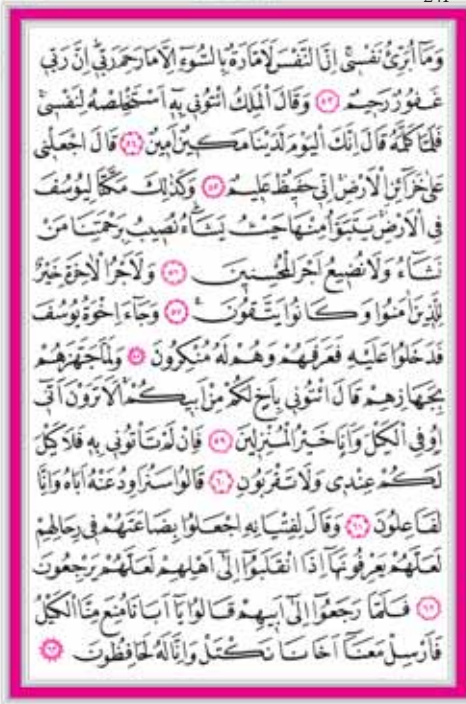 وَمَٓا اُبَرِّئُ نَفْسٖيۚ اِنَّ النَّفْسَ لَاَمَّارَةٌ بِالسُّٓوءِ اِلَّا مَا رَحِمَ رَبّٖيۜ اِنَّ رَبّٖي
غَفُورٌ رَحٖيمٌ ﴿٥٣﴾ وَقَالَ الْمَلِكُ ائْتُونٖي بِهٖٓ اَسْتَخْلِصْهُ لِنَفْسٖيۚ
فَلَمَّا كَلَّمَهُ قَالَ اِنَّكَ الْيَوْمَ لَدَيْنَا مَكٖينٌ اَمٖينٌ ﴿٥٤﴾ قَالَ اجْعَلْنٖي
عَلٰى خَزَٓائِنِ الْاَرْضِۚ اِنّٖي حَفٖيظٌ عَلٖيمٌ ﴿٥٥﴾ وَكَذٰلِكَ مَكَّنَّا لِيُوسُفَ
فِي الْاَرْضِۚ يَتَبَوَّاُ مِنْهَا حَيْثُ يَشَٓاءُۜ نُصٖيبُ بِرَحْمَتِنَا مَنْ
نَشَٓاءُ وَلَا نُضٖيعُ اَجْرَ الْمُحْسِنٖينَ ﴿٥٦﴾ وَلَاَجْرُ الْاٰخِرَةِ خَيْرٌ
لِلَّذٖينَ اٰمَنُوا وَكَانُوا يَتَّقُونَ ﴿٥٧﴾ وَجَٓاءَ اِخْوَةُ يُوسُفَ
فَدَخَلُوا عَلَيْهِ فَعَرَفَهُمْ وَهُمْ لَهُ مُنْكِرُونَ ﴿٥٨﴾ وَلَمَّا جَهَّزَهُمْ
بِجَهَازِهِمْ قَالَ ائْتُونٖي بِاَخٍ لَكُمْ مِنْ اَبٖيكُمْۚ اَلَا تَرَوْنَ اَنّٖٓي
اُوفِي الْكَيْلَ وَاَنَا۬ خَيْرُ الْمُنْزِلٖينَ ﴿٥٩﴾ فَاِنْ لَمْ تَأْتُونٖي بِهٖ فَلَا كَيْلَ
لَكُمْ عِنْدٖي وَلَا تَقْرَبُونِ ﴿٦٠﴾ قَالُوا سَنُرَاوِدُ عَنْهُ اَبَاهُ وَاِنَّا
لَفَاعِلُونَ ﴿٦١﴾ وَقَالَ لِفِتْيَانِهِ اجْعَلُوا بِضَاعَتَهُمْ فٖي رِحَالِهِمْ
لَعَلَّهُمْ يَعْرِفُونَهَٓا اِذَا انْقَلَبُٓوا اِلٰٓى اَهْلِهِمْ لَعَلَّهُمْ يَرْجِعُونَ
﴿٦٢﴾ فَلَمَّا رَجَعُٓوا اِلٰٓى اَبٖيهِمْ قَالُوا يَٓا اَبَانَا مُنِعَ مِنَّا الْكَيْلُ
فَاَرْسِلْ مَعَنَٓا اَخَانَا نَكْتَلْ وَاِنَّا لَهُ لَحَافِظُونَ ﴿٦٣﴾